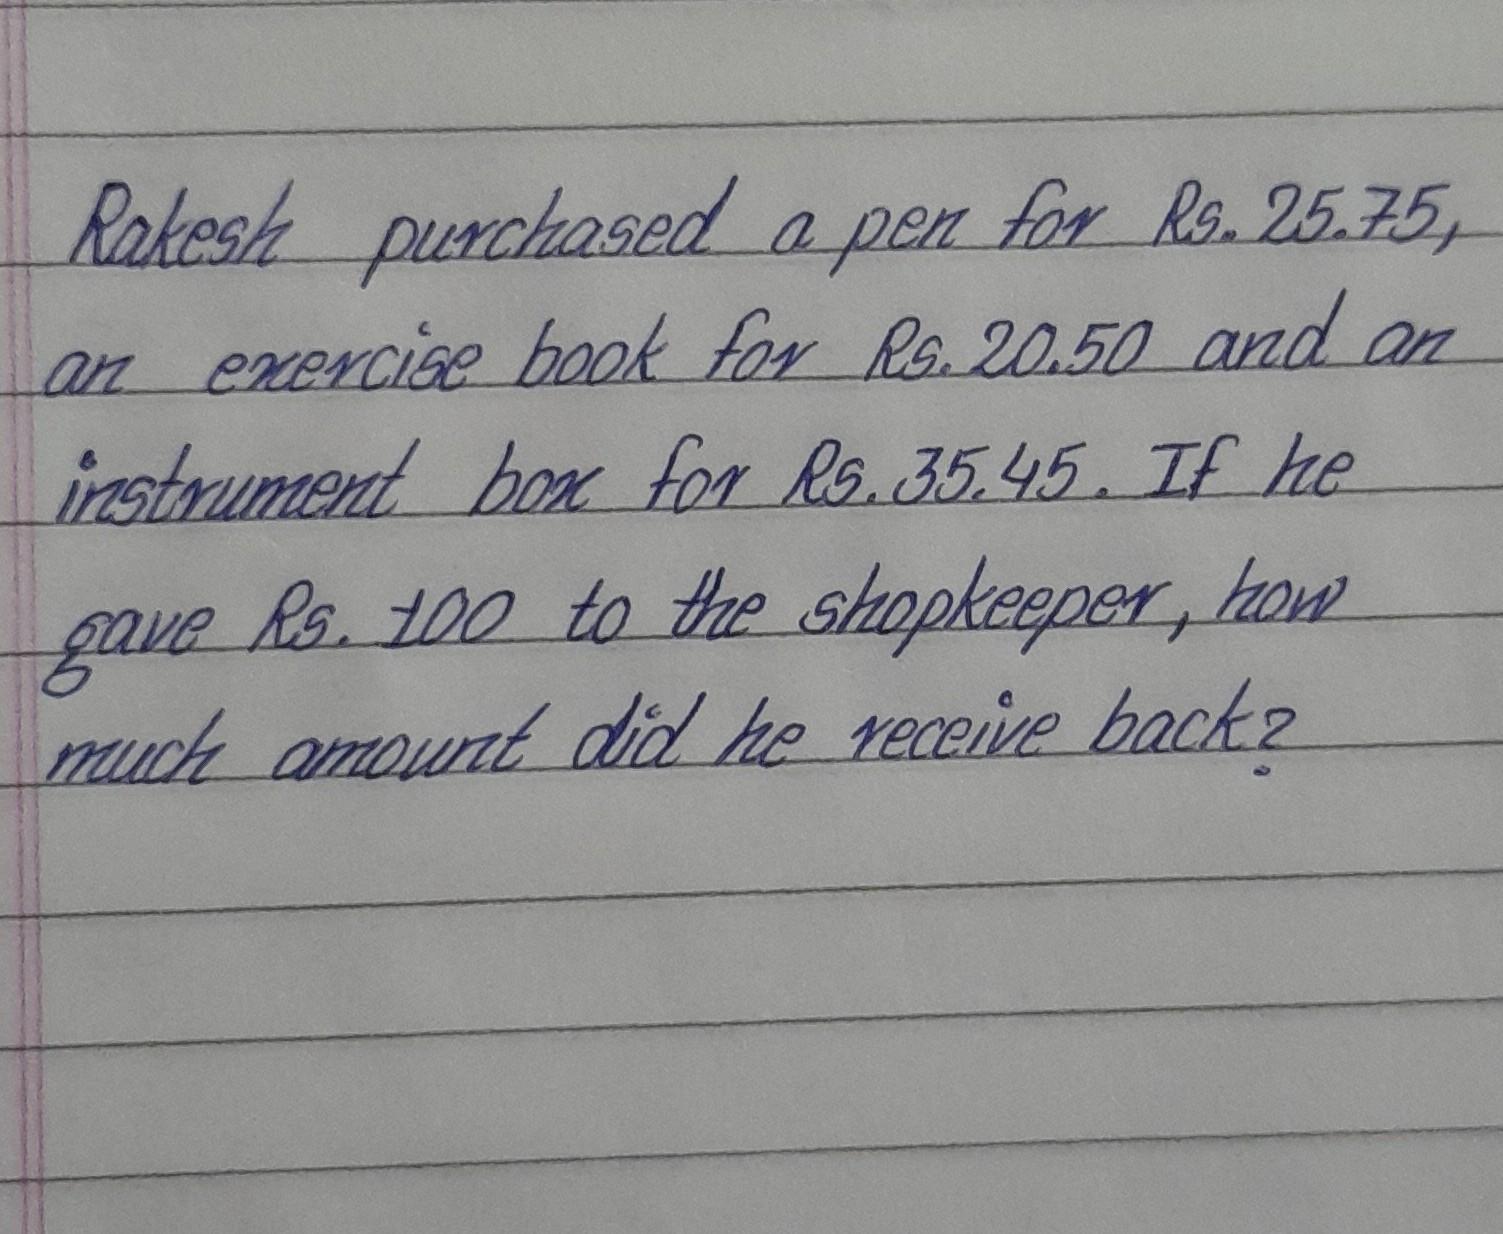 Rakesh purchased a pen for Rs. 25.75,
an exercise book for Rs. 20.50 and an
instrument box for Rs. 35.45. If he
gave Rs. 100 to the shopkeeper, how
much amount did he receive back?